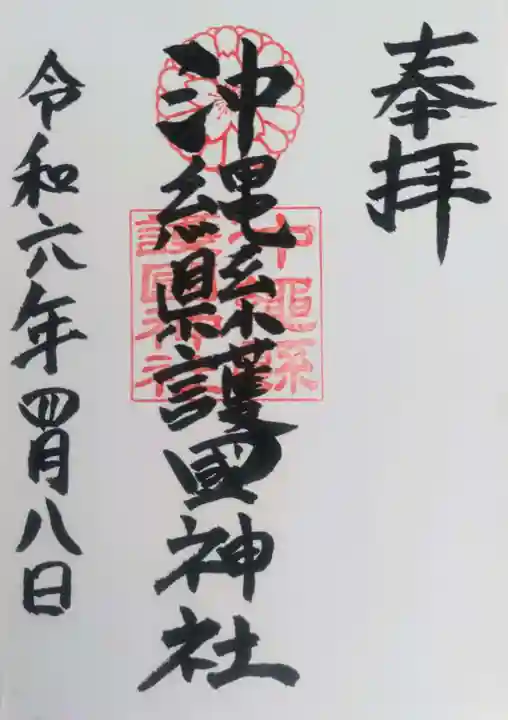 奉拝
沖縄縣護國神社
沖縄縣
護國神社
令和六年四月八日